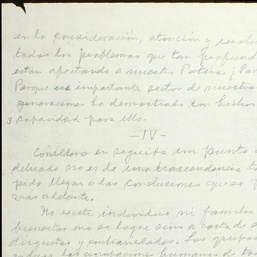 en la consideración, atención y
todos los problemas que tan
están afectando a nuestra Patria. ¡Por
Porque ese importante sector de nuestra
generaciones ha demostrado con hechos
y capacidad para ello.
-IV-
Considero en seguida un punto
delicado no es de una trascendencia
pido llegar a las conclusiones que se
más adelante.
No existe individuo ni familia
bienestar no se logre sino a costa de
disgustos y contrariedades. Los grupos
humanas de